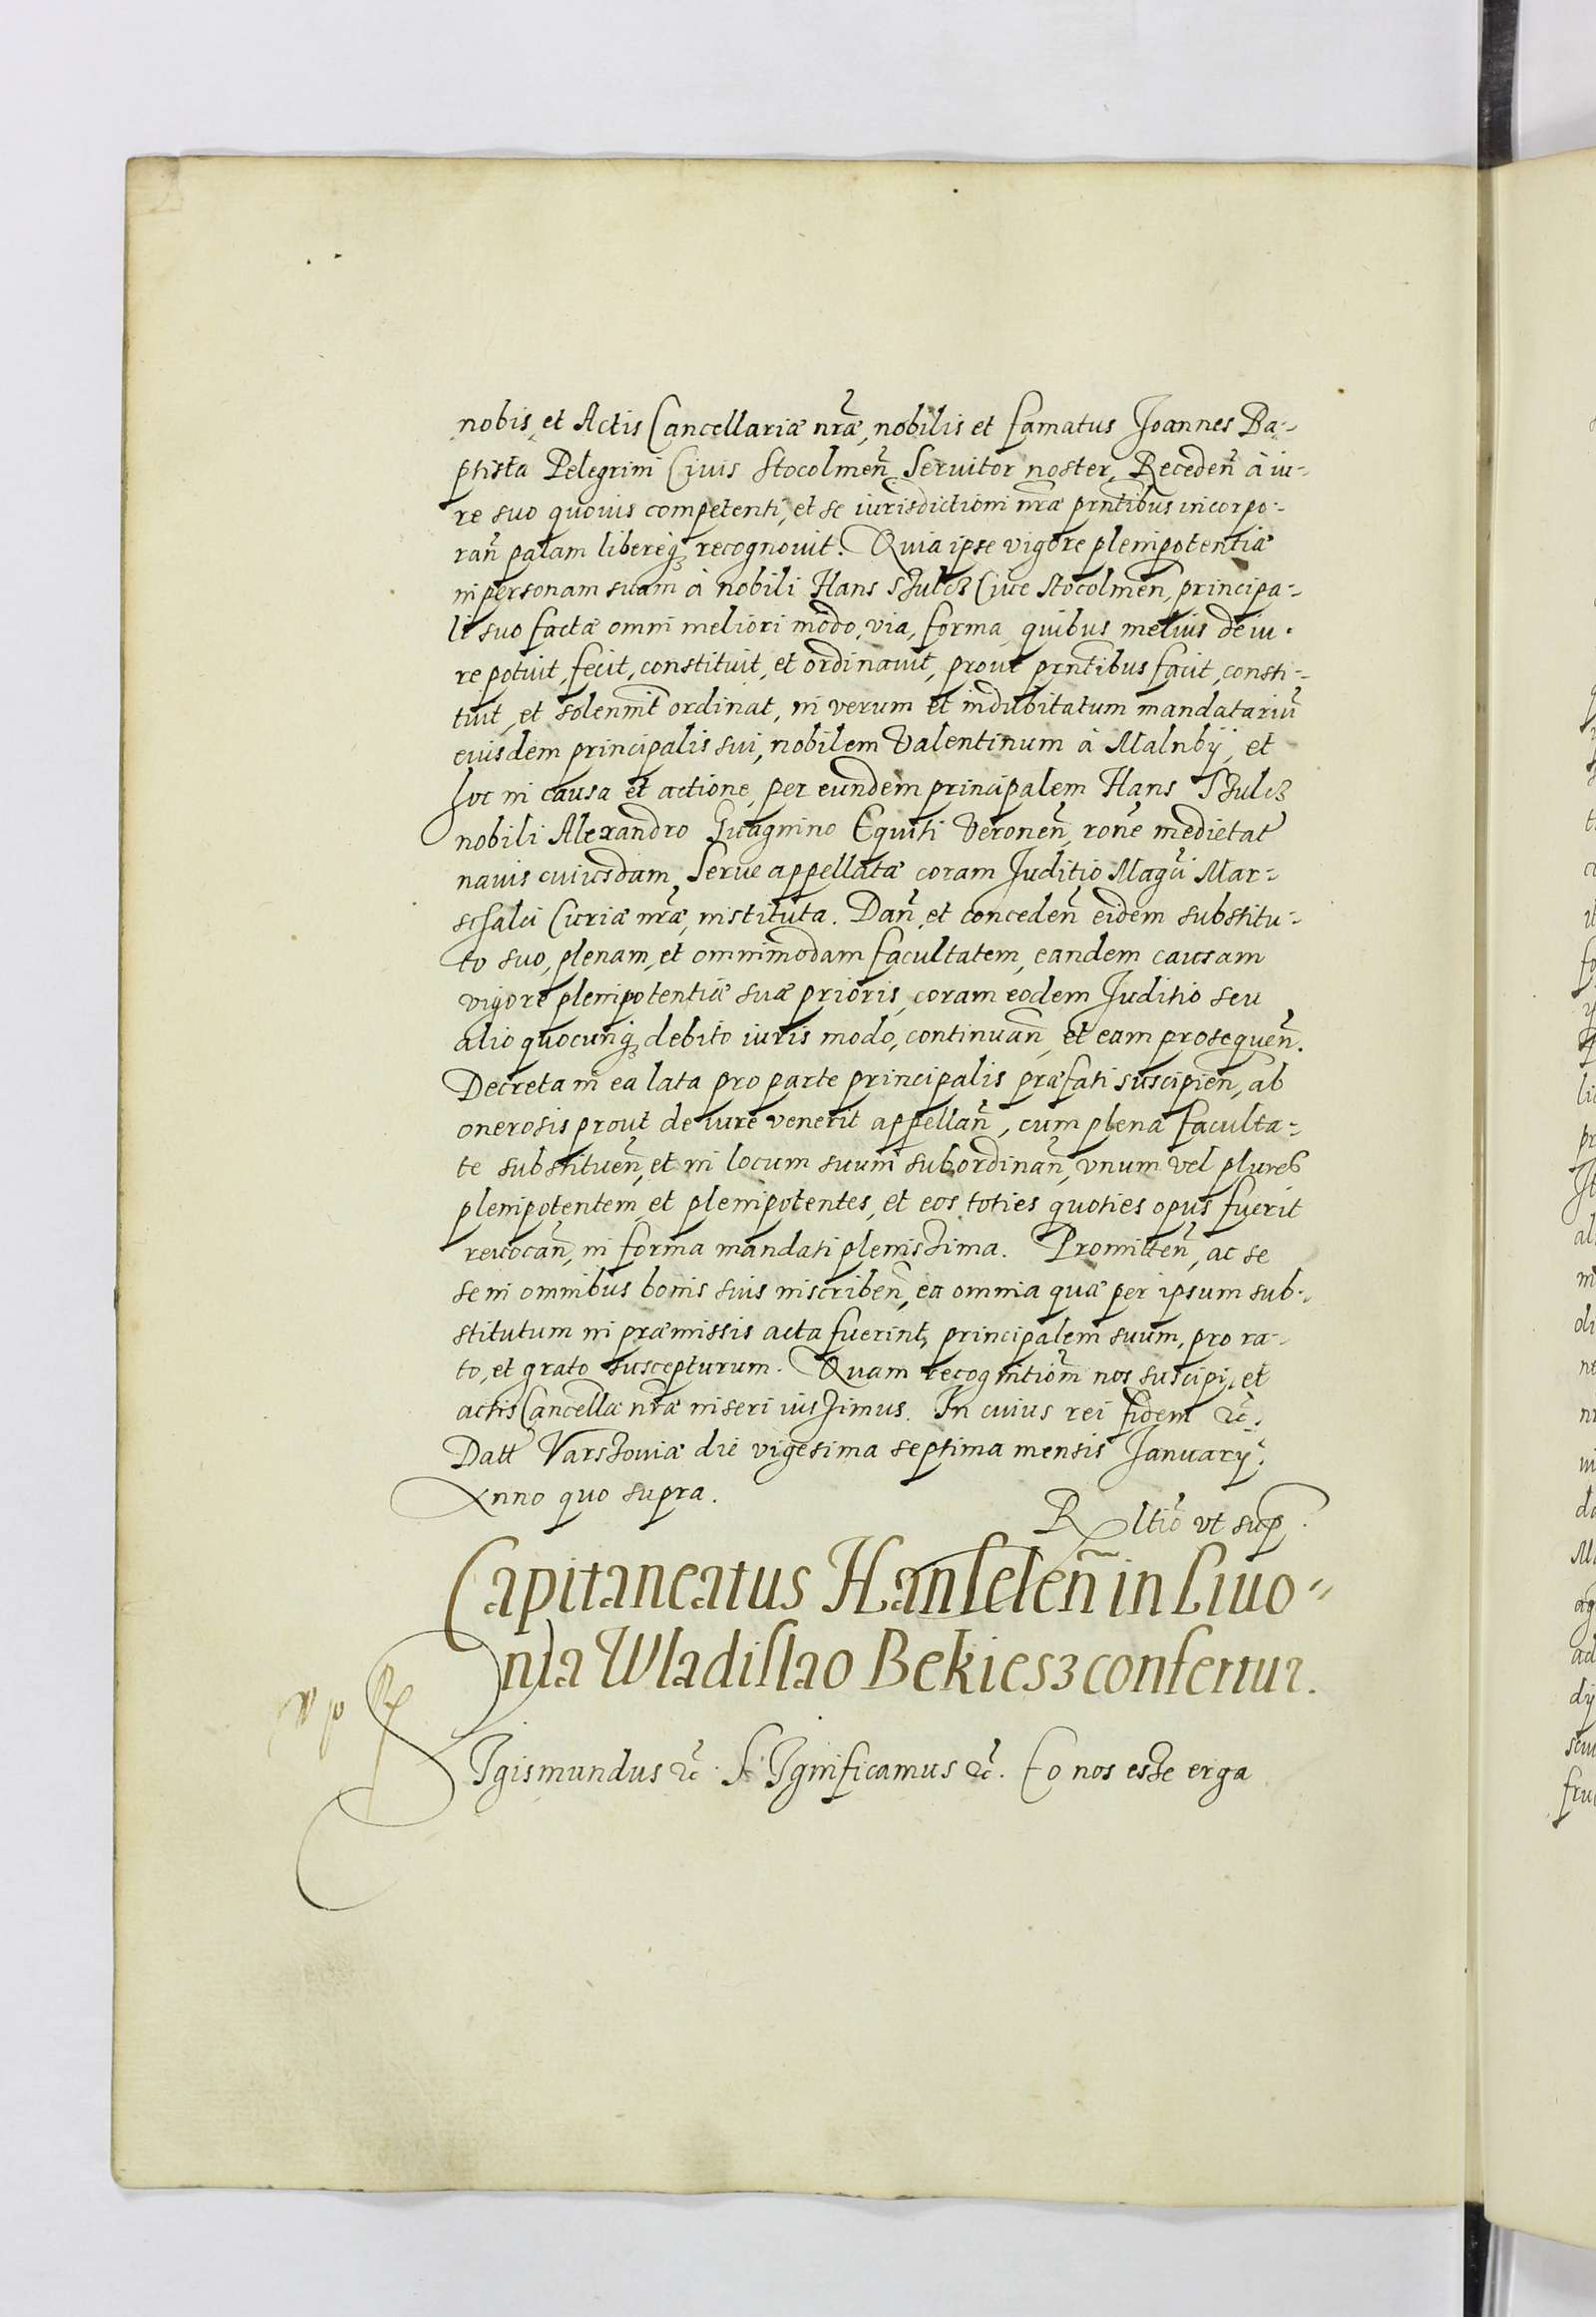 nobis, et Actis Cancellariæ nr̃æ, nobilis et famatus Joannes Ba-
ptista Pelegrini Civis Stocolmeñ Servitor noster, Recedeñ à iu-
re suo quovis competenti, et se iurisdictioni nr̃æ prñtibus incorpo-
rañ palam libereq; recognovit. Quia ipse vigore plenipotentiæ
in personam suam à nobili Hans Szulcz Cive Stocolmeñ, principa-
li suo factæ omni meliori modo, via, forma quibus melius de iu-
re potuit, fecit, constituit, et ordinavit, prout prñtibus facit, consti-
tuit, et solennit̃ ordinat, in verum et indubitatum mandatariũ
eiusdem principalis sui, nobilem Valentinum à Malnbÿ, et
hoc in causa et actione, per eundem principalem Hans Szulcz
nobili Alexandro Guagnino Equiti Veroneñ, roñe medietat̃
navis cuiusdam Serve appellatæ coram Juditio Magci Mar-
schalci Curiæ nr̃æ, instituta. Dañ, et concedeñ eidem substitu-
to suo, plenam, et omnimodam facultatem, eandem causam
vigore plenipotentiæ suæ prioris, coram eodem Juditio seu
alio quocunq; debito iuris modo, continuañ, et eam prosequeñ.
Decreta in ea lata pro parte principalis præfati suscipieñ, ab
onerosis prout de iure venerit appellañ, cum plena faculta-
te substitueñ, et in locum suum subordinañ, vnum vel plures
plenipotentem, et plenipotentes, et eos toties quoties opus fuerit
revocañ, in forma mandati plenissima. Promitteñ, ac se
se in omnibus bonis suis inscribeñ, ea omnia quæ per ipsum sub-
stitutum in præmissis acta fuerint, principalem suum, pro ra-
to, et grato suscepturum. Quam recognitiom̃ nos suscipi, et
actis Cancellæ nr̃æ inseri iussimus. In cuius rei fidem &c̃.
Datt Varssoviæ die vigesima septima mensis Januarÿ.
Anno quo supra.
R ltiõ vt sup̃.
Capitaneatus Hanseleñ in Livo-
nia Wladislao Bekiesz confertur.
SIgismundus &c̃. SIgnificamus &c̃. Eo nos esse erga